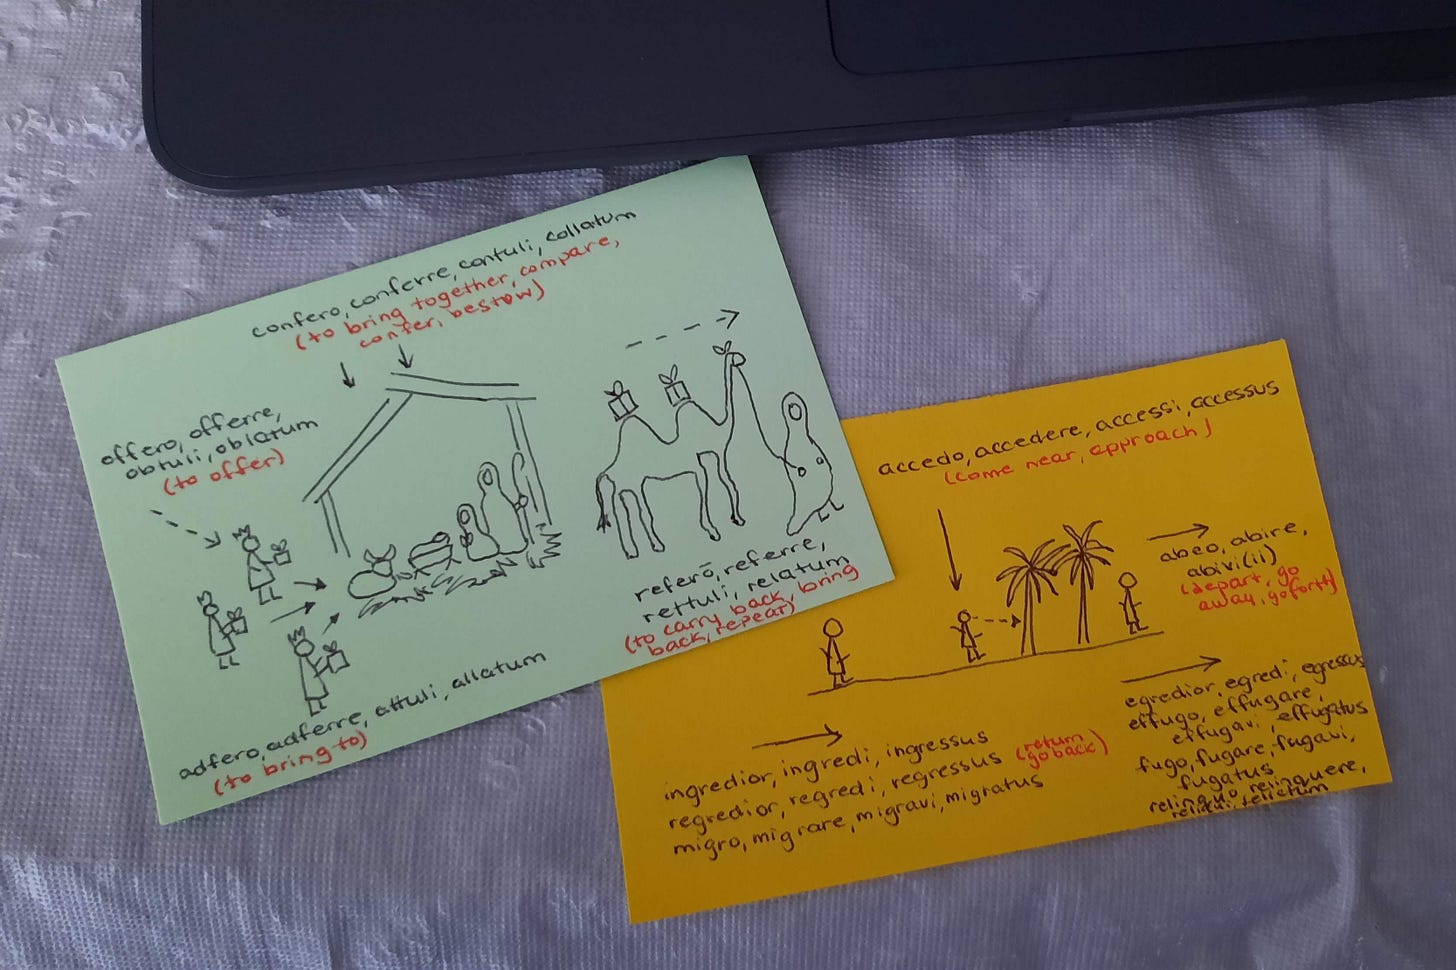 confero, conferre, contuli, collatum
(to bring together, compare,
confer, bestow)
offero, offerre,
obtuli, oblatum
(to offer)
referō, referre,
rettuli, relatum
(to carry back, bring
back, repeat)
adfero, adferre, attuli, allatum
(to bring to)
accedo, accedere, accessi, accessus
(come near, approach)
abeo, abire,
abivi(ii)
(depart, go
away, go forth)
ingredior, ingredi, ingressus
regredior, regredi, regressus (return, go back)
migro, migrare, migravi, migratus
egredior, egredi, egressus
effugo, effugare,
effugavi, effugatus
fugo, fugare, fugavi,
fugatus
relinquo, relinquere,
reliqui, relictum